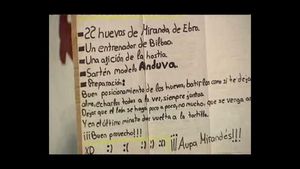 22 huevos de Miranda de Ebro.
Un entrenador de Bilbao.
Una afición de la hostia.
Sartén modelo Anduva.
Preparación:
Buen posicionamiento de los huevos, batirlos como si te dejases
alma, echarlos todos a la vez, siempre juntos
Dejar que el león se haga poco a poco, no mucho, que se venga
Y en el último minuto dar vuelta a la tortilla.
¡¡¡Buen provecho!!! ¡¡¡Aupa Mirandés!!!
XD :) :( :) :) XD